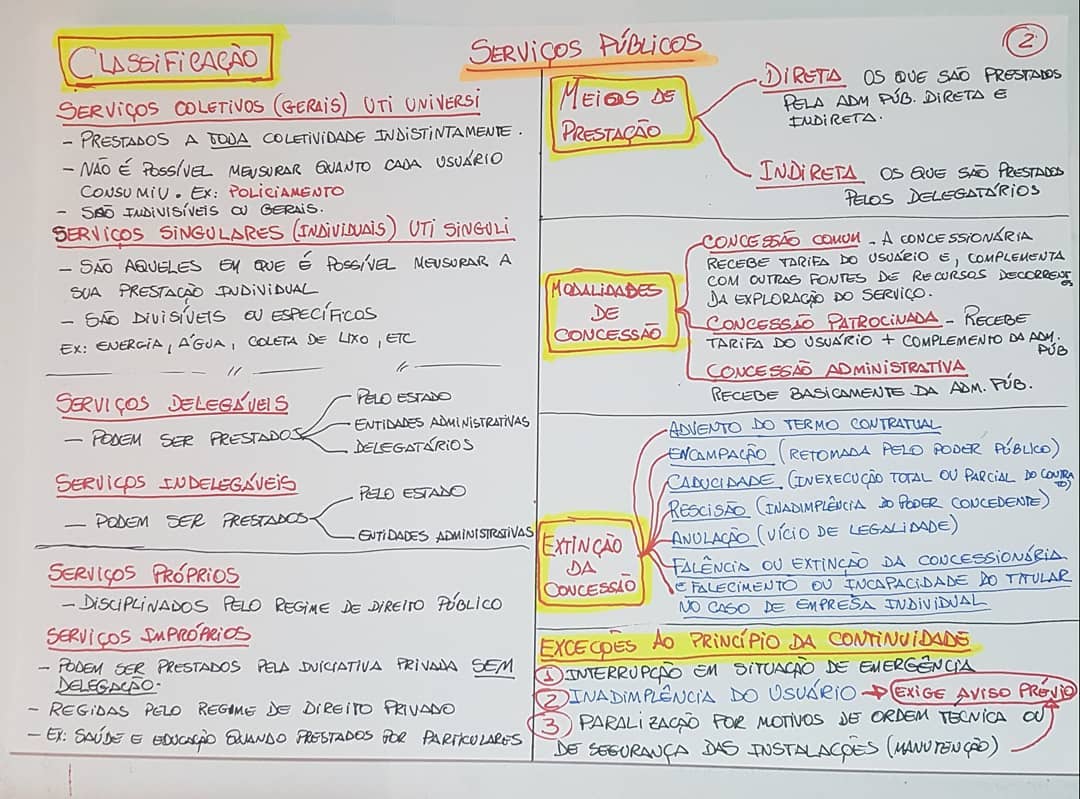 SERVIÇOS PÚBLICOS
2
CLASSIFICAÇÃO
SERVIÇOS COLETIVOS (GERAIS) UTI UNIVERSI
- PRESTADOS A TODA COLETIVIDADE INDISTINTAMENTE.
- NÃO É POSSÍVEL MENSURAR QUANTO CADA USUÁRIO
CONSUMIU. EX: POLICIAMENTO
- SÃO INDIVISÍVEIS OU GERAIS.
SERVIÇOS SINGULARES (INDIVIDUAIS) UTI SINGULI
- SÃO AQUELES EM QUE É POSSÍVEL MENSURAR A
SUA PRESTAÇÃO INDIVIDUAL
- SÃO DIVISÍVEIS OU ESPECÍFICOS
EX: ENERGIA, ÁGUA, COLETA DE LIXO, ETC
SERVIÇOS DELEGÁVEIS
- PODEM SER PRESTADOS
PELO ESTADO
ENTIDADES ADMINISTRATIVAS
DELEGATÁRIOS
SERVIÇOS INDELEGÁVEIS
- PODEM SER PRESTADOS
PELO ESTADO
ENTIDADES ADMINISTRATIVAS
SERVIÇOS PRÓPRIOS
- DISCIPLINADOS PELO REGIME DE DIREITO PÚBLICO
SERVIÇOS IMPRÓPRIOS
- PODEM SER PRESTADOS PELA INICIATIVA PRIVADA SEM
DELEGAÇÃO.
- REGIDAS PELO REGIME DE DIREITO PRIVADO
- EX: SAÚDE E EDUCAÇÃO QUANDO PRESTADOS POR PARTICULARES
MEIOS DE
PRESTAÇÃO
DIRETA OS QUE SÃO PRESTADOS
PELA ADM PÚB. DIRETA E
INDIRETA.
INDIRETA OS QUE SÃO PRESTADOS
PELOS DELEGATÁRIOS
MODALIDADES
DE
CONCESSÃO
CONCESSÃO COMUM - A CONCESSIONÁRIA
RECEBE TARIFA DO USUÁRIO E, COMPLEMENTA
COM OUTRAS FONTES DE RECURSOS DECORRENTES
DA EXPLORAÇÃO DO SERVIÇO.
CONCESSÃO PATROCINADA - RECEBE
TARIFA DO USUÁRIO + COMPLEMENTO DA ADM.
PÚB
CONCESSÃO ADMINISTRATIVA
RECEBE BASICAMENTE DA ADM. PÚB.
EXTINÇÃO
DA
CONCESSÃO
ADVENTO DO TERMO CONTRATUAL
ENCAMPAÇÃO (RETOMADA PELO PODER PÚBLICO)
CADUCIDADE (INEXECUÇÃO TOTAL OU PARCIAL DO CONTRATO)
RESCISÃO (INADIMPLÊNCIA DO PODER CONCEDENTE)
ANULAÇÃO (VÍCIO DE LEGALIDADE)
FALÊNCIA OU EXTINÇÃO DA CONCESSIONÁRIA
E FALECIMENTO OU INCAPACIDADE DO TITULAR
NO CASO DE EMPRESA INDIVIDUAL
EXCEÇÕES AO PRINCÍPIO DA CONTINUIDADE
1 INTERRUPÇÃO EM SITUAÇÃO DE EMERGÊNCIA
2 INADIMPLÊNCIA DO USUÁRIO → EXIGE AVISO PRÉVIO
3 PARALIZAÇÃO POR MOTIVOS DE ORDEM TÉCNICA OU
DE SEGURANÇA DAS INSTALAÇÕES (MANUTENÇÃO)